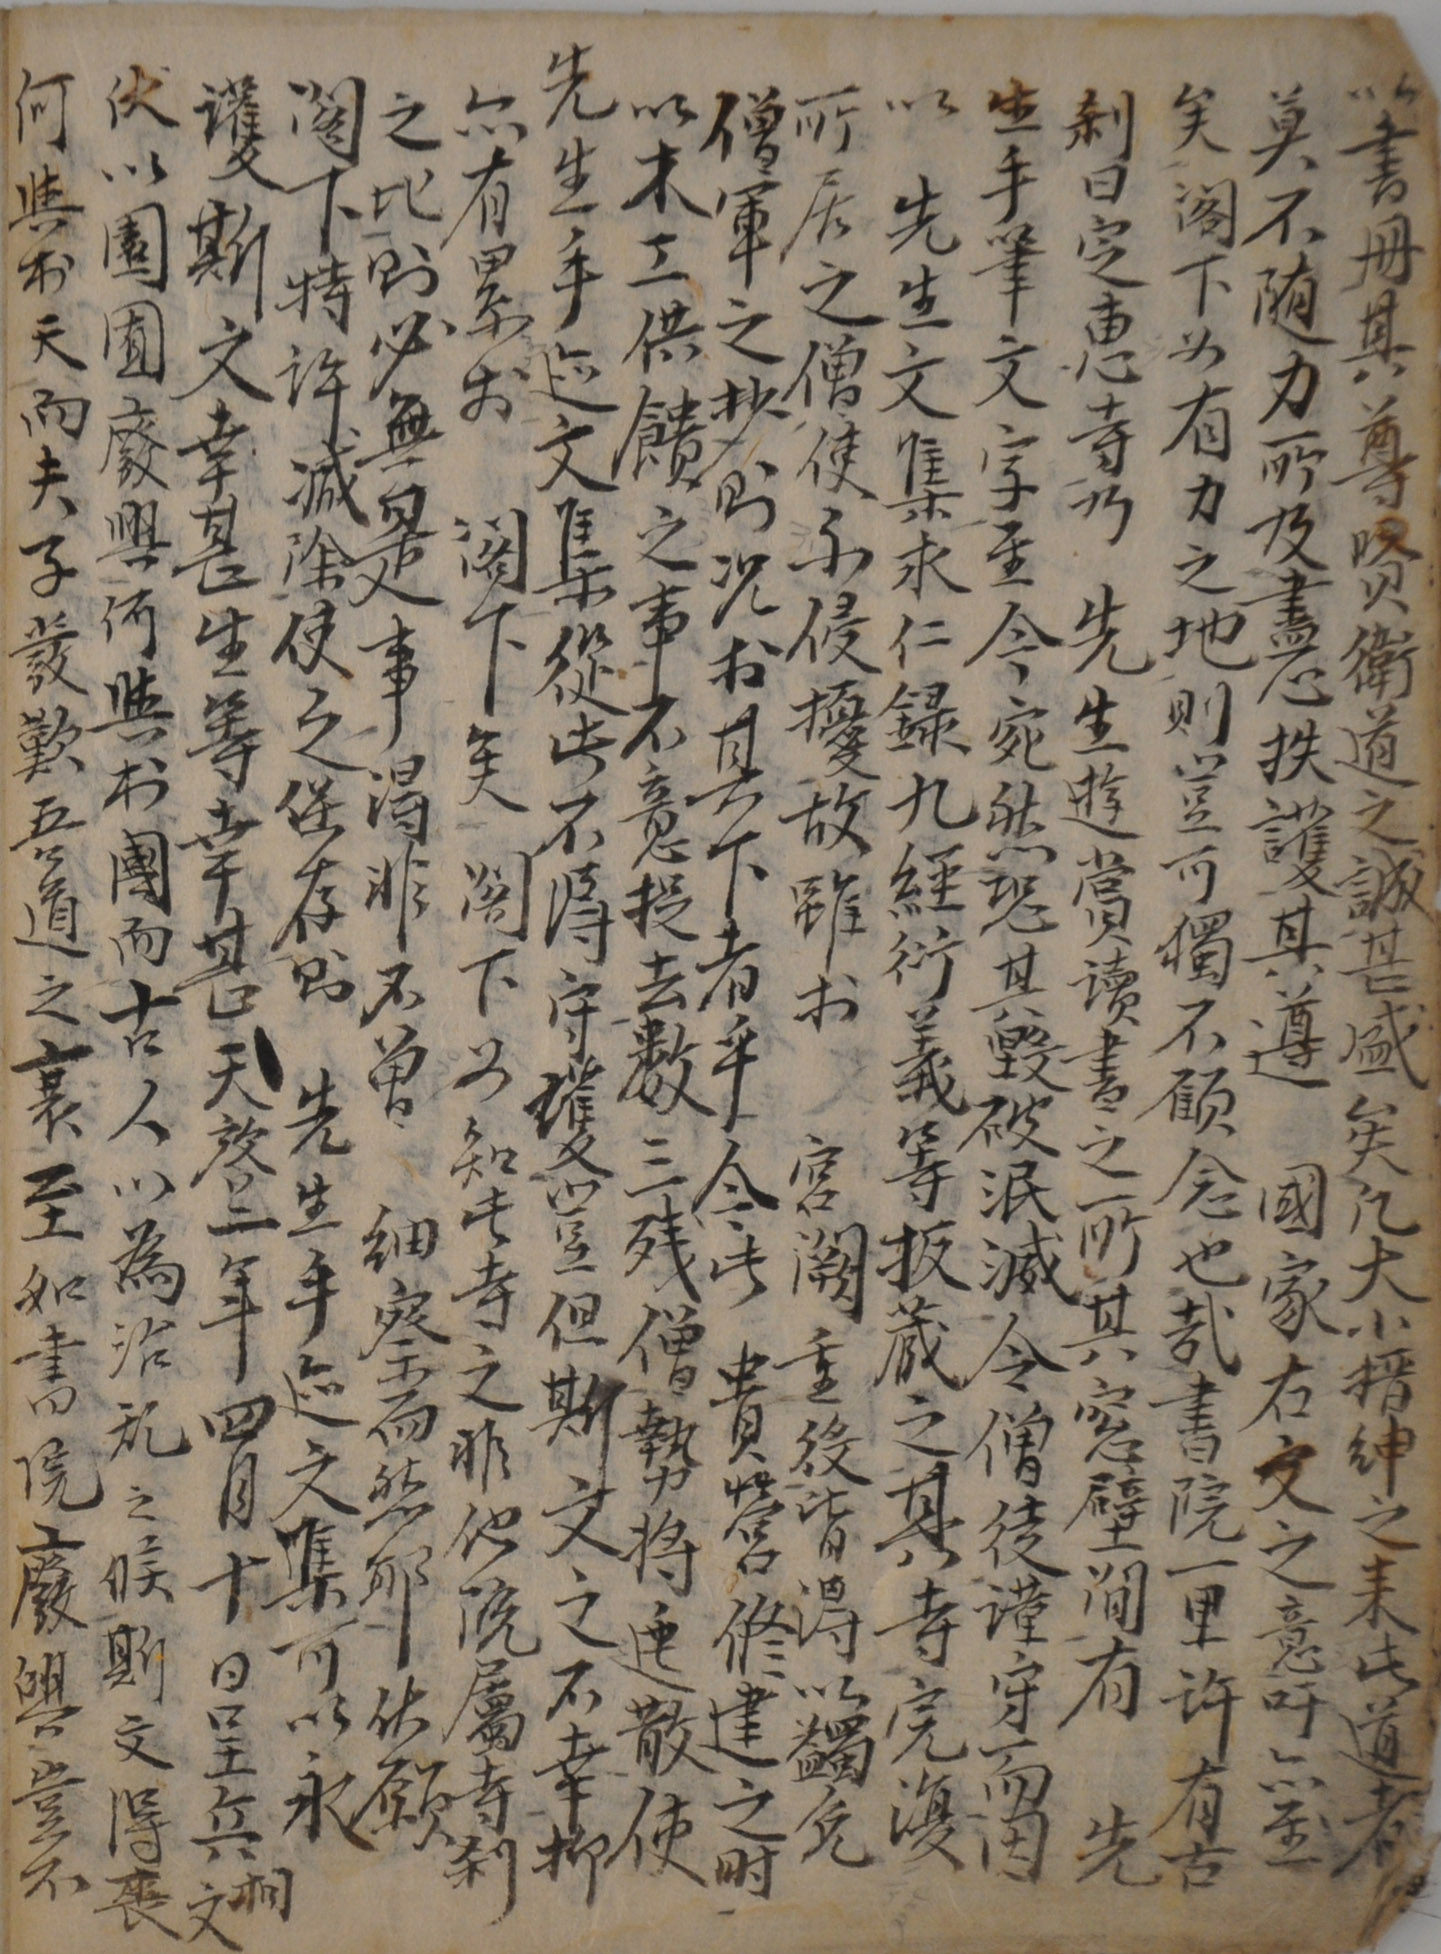 以書冊其尊賢衛道之誠甚盛矣凡大小搢紳之來此道者
莫不随力所及盡心扶護其遵 國家右文之意吁亦至
矣閤下如有力之地則豈可獨不顧念也哉書院一里許有古
刹曰定惠寺乃 先生遊賞讀書之所其窓壁間有 先
生手筆文字至今宛然恐其毀破泯滅令僧徒謹守而因
以 先生文集求仁錄九經衍義等板蔵之其寺完復
所居之僧使不侵擾故雖於 宮闕重役皆得以蠲免
僧軍之抄則况於其下者乎今此 貴營修建之時
以木工供饋之事不意捉去數三残僧勢將逃散使
先生手迹文集從此不得守護豈但斯文之不幸抑
亦有累於 閤下矣 閤下如知此寺之非他院屬寺刹
之比則必無是事得非不曽 細察而然耶伏願
閤下特許減除使之保存則 先生手迹文集可以永
護斯文幸甚生等幸甚天啓二年四月十日呈兵相文
伏以園囿廢興何與於國而古人以為治乱之候斯文得喪
何與於天而夫子發歎吾道之衰至如書院廢興豈不